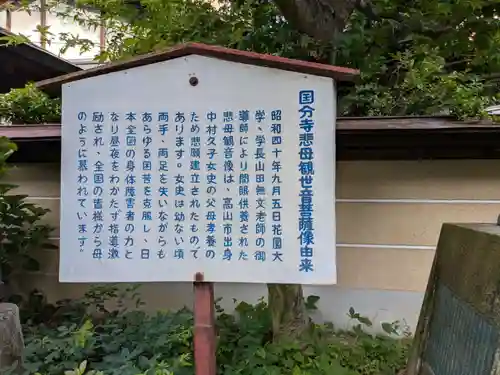 国分寺悲母観世音菩薩像由来
昭和四十年九月五日花園大
学、学長山田無文老師の御
導師により開眼供養された
悲母観音像は、高山市出身
中村久子女史の父母孝養の
ため悲願建立されたもので
あります。女史は幼ない頃
両手、両足を失いながらも
あらゆる困苦を克服し、日
本全囯の身体障害者の力と
なり昼夜をわかたず指導激
励され、全国の皆様から母
のように慕われています。